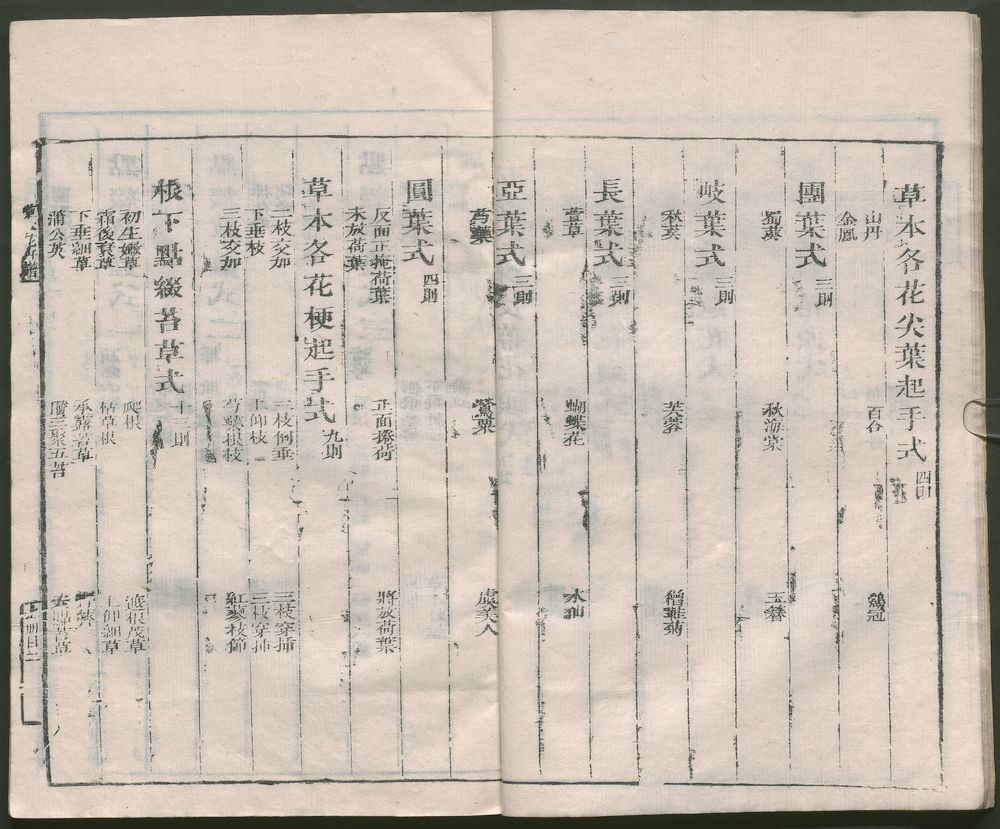 草本各花尖葉起手式 四則
山丹 百合 鷄冠
金鳳
團葉式 三則
蜀葵 秋海棠 玉簪
岐葉式 三則
秋葵 芙蓉 僧鞋菊
長葉式 三則
萱草 蝴蝶花 水仙
亞葉式 三則
芍藥 鶯粟 虞美人
圓葉式 四則
反面正掩荷葉 正面捲荷 將放荷葉
未放荷葉
草本各花梗起手式 九則
二枝交加 三枝倒垂 三枝穿插
下垂枝 上仰枝 二枝穿插
三枝交加 芍藥根枝 紅蓼枝節
根下點綴苔草式 十三則
初生嫩草 爬根 遮根茂草
霜後衰草 枯草根 上仰細草
下垂細草 承露苔草
蒲公英 攢三聚五苔